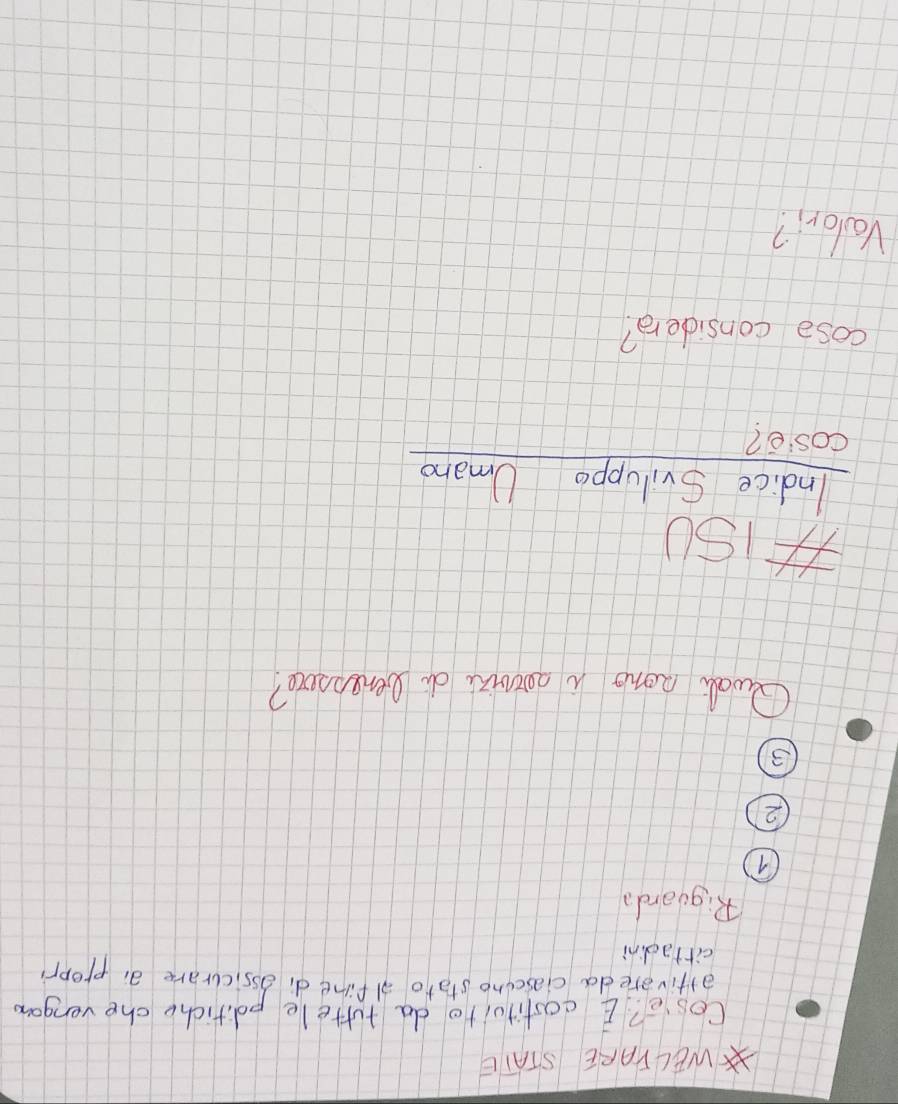 * WELFARE STATE
Cos'è? È costituito da tutte le politiche che vengono
attivate da ciascuno stato al fine di assicurare ai propri
cittadini
Riguarda
1
2
3
Quali sono i servizi di benessere?
# ISU
Indice Sviluppo Umano
cos'è?
cosa considera?
Valori?